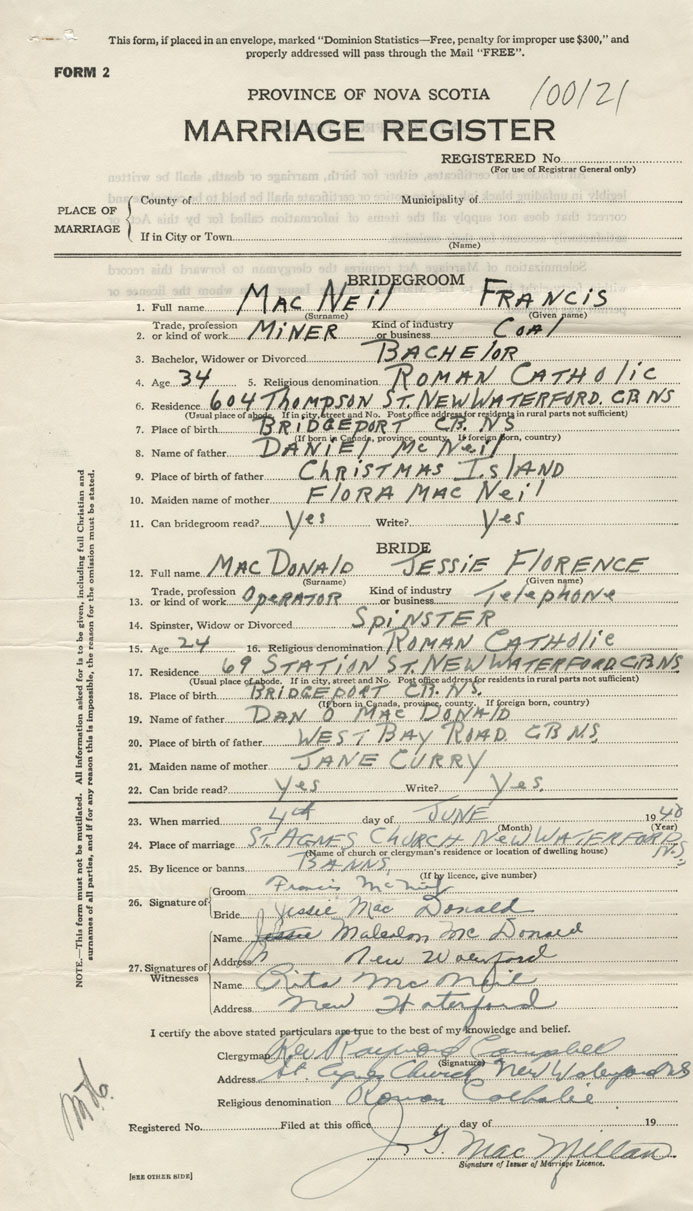 This form, if placed in an envelope, marked "Dominion Statistics—Free, penalty for improper use $300," and
properly addressed will pass through the Mail "FREE".
FORM 2
PROVINCE OF NOVA SCOTIA
100121
MARRIAGE REGISTER
REGISTERED No.
(For use of Registrar General only)
PLACE OF MARRIAGE
County of Municipality of
If in City or Town
(Name)
BRIDEGROOM
1. Full name MacNeil Francis
(Surname) (Given name)
2. Trade, profession or kind of work Miner Kind of industry or business Coal
3. Bachelor, Widower or Divorced Bachelor
4. Age 34 5. Religious denomination Roman Catholic
6. Residence 604 Thompson St. New Waterford. CB. NS
(Usual place of abode. If in city, street and No. Post office address for residents in rural parts not sufficient)
7. Place of birth Bridgeport CB. NS
(If born in Canada, province, county. If foreign born, country)
8. Name of father Daniel McNeil
9. Place of birth of father Christmas Island
10. Maiden name of mother Flora MacNeil
11. Can bridegroom read? Yes Write? Yes
BRIDE
12. Full name MacDonald Jessie Florence
(Surname) (Given name)
13. Trade, profession or kind of work Operator Kind of industry or business Telephone
14. Spinster, Widow or Divorced Spinster
15. Age 24 16. Religious denomination Roman Catholic
17. Residence 69 Station St. New Waterford CB. NS
(Usual place of abode. If in city, street and No. Post office address for residents in rural parts not sufficient)
18. Place of birth Bridgeport CB. NS.
(If born in Canada, province, county. If foreign born, country)
19. Name of father Dan O MacDonald
20. Place of birth of father West Bay Road. CB N.S.
21. Maiden name of mother Jane Curry
22. Can bride read? Yes Write? Yes.
23. When married 4th day of June 1940
(Month) (Year)
24. Place of marriage St. Agnes Church New Waterford N.S.
(Name of church or clergyman's residence or location of dwelling house)
25. By licence or banns Banns
(If by licence, give number)
26. Signature of
Groom Francis McNeil
Bride Jessie Mac Donald
27. Signatures of Witnesses
Name Jessie Mc Donald
Address New Waterford
Name Rita Mc Neil
Address New Waterford
I certify the above stated particulars are true to the best of my knowledge and belief.
Clergyman Rev Raymond Campbell
(Signature)
Address St. Agnes Church New Waterford NS
Religious denomination Roman Catholic
Registered No. Filed at this office day of 19
J. G. Mac Millan
Signature of Issuer of Marriage Licence.
[SEE OTHER SIDE]
NOTE.—This form must not be mutilated. All information asked for is to be given, including full Christian and
surnames of all parties, and if for any reason this is impossible, the reason for the omission must be stated.